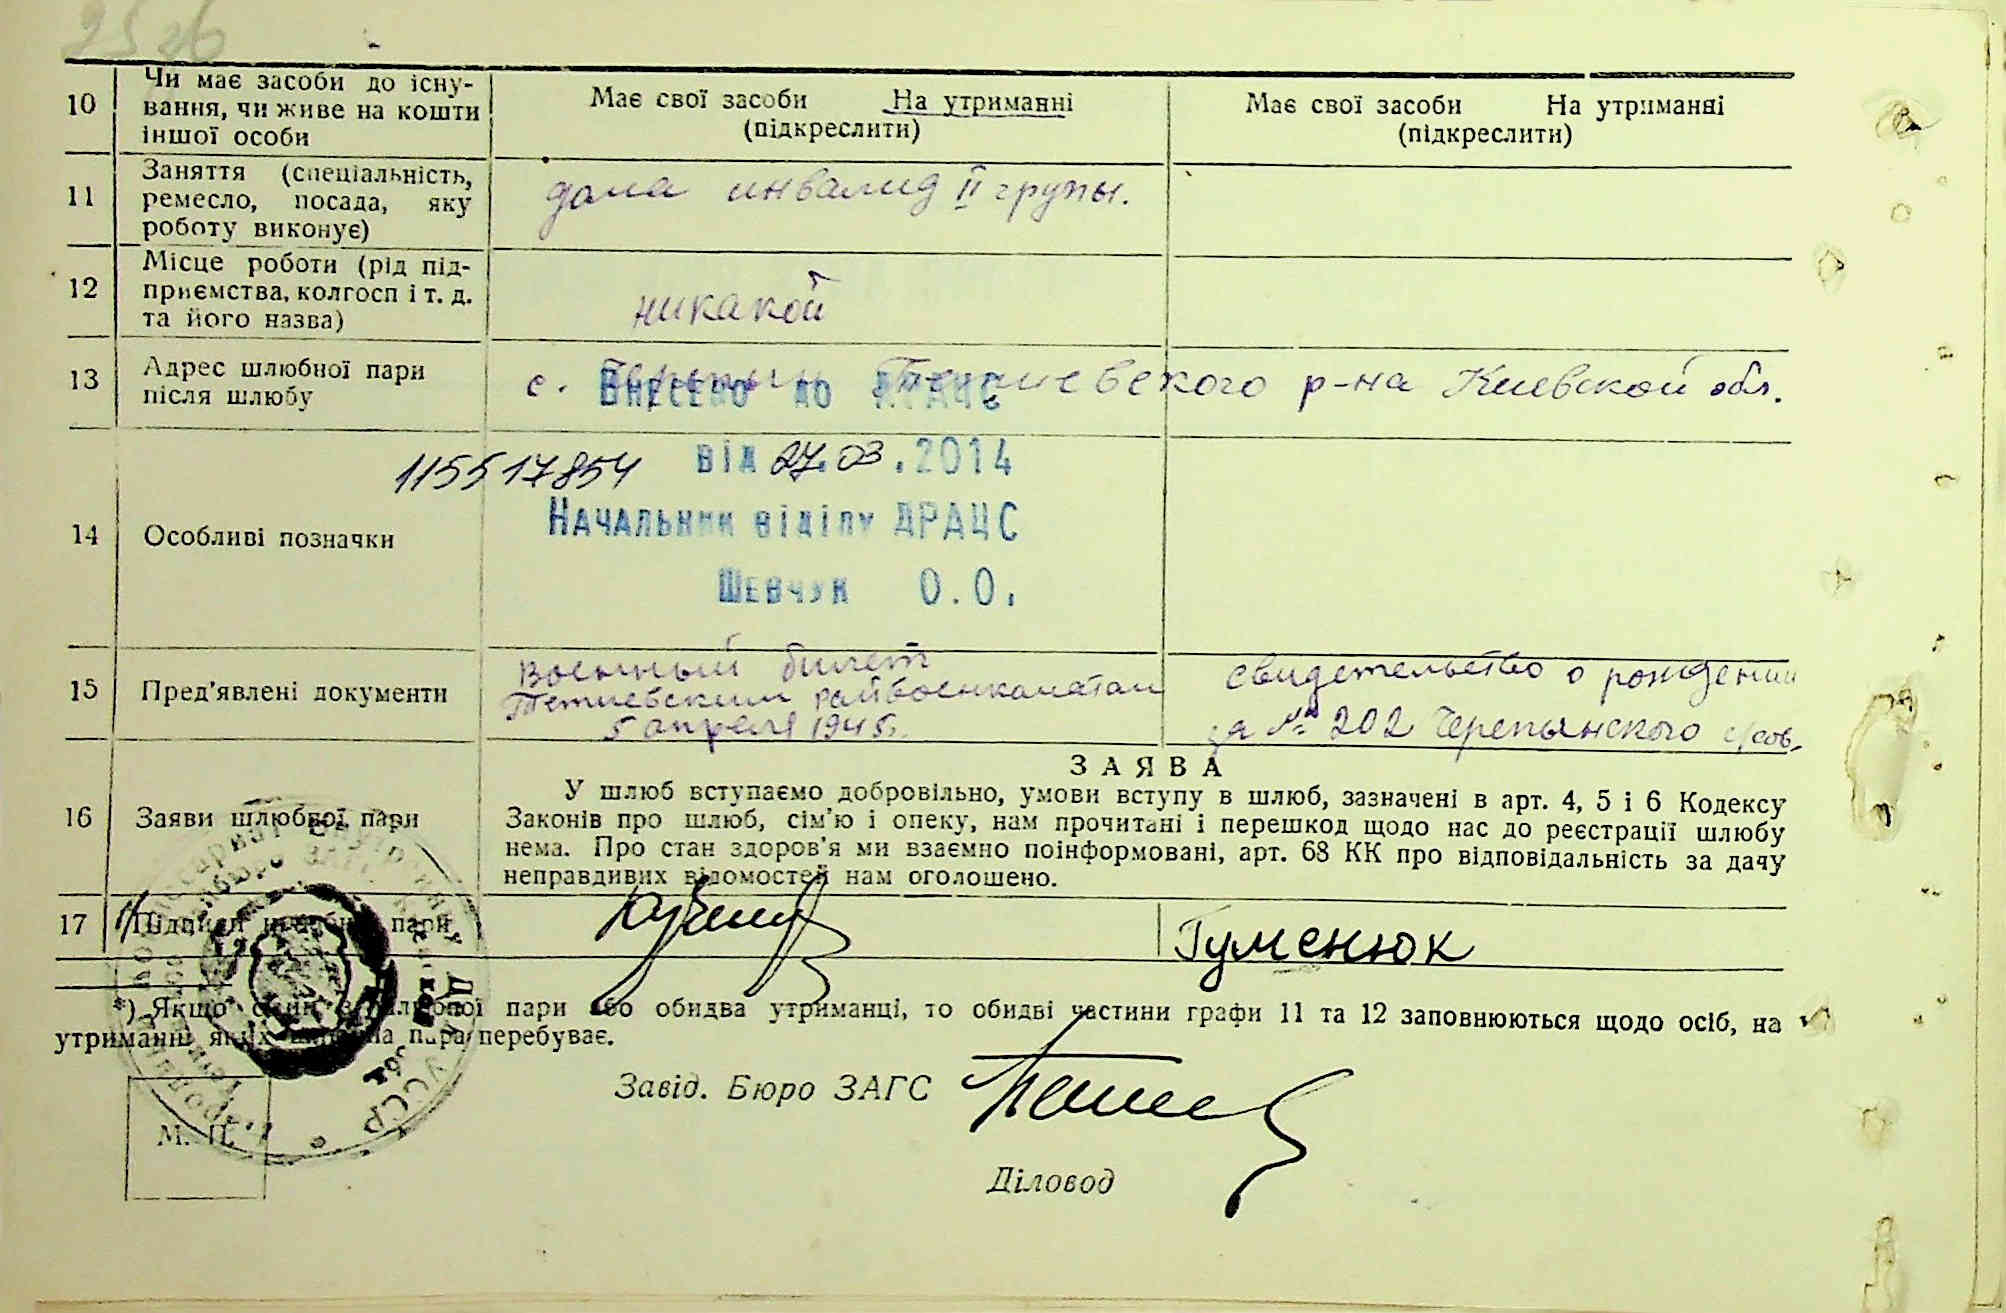 25 26
10
Чи має засоби до існу-
вання, чи живе на кошти
іншої особи
Має свої засоби На утриманні
(підкреслити)
Має свої засоби На утриманні
(підкреслити)
11
Заняття (спеціальність,
ремесло, посада, яку
роботу виконує)
дома инвалид II групы.
12
Місце роботи (рід під-
приємства, колгосп і т. д.
та його назва)
никакой
13
Адрес шлюбної пари
після шлюбу
с. Тетиевского р-на Киевской обл.
Внесено до ДРАЦС
115517854
від 27.03.2014
Начальник відділу ДРАЦС
Шевчук О.О.
14
Особливі позначки
15
Пред'явлені документи
Военный билет
Тетиевским райвоенкоматом
5 апреля 1945.
свидетельство о рождении
за № 202 Черепынского с/сов.
16
Заяви шлюбної пари
ЗАЯВА
У шлюб вступаємо добровільно, умови вступу в шлюб, зазначені в арт. 4, 5 і 6 Кодексу
Законів про шлюб, сім'ю і опеку, нам прочитані і перешкод щодо нас до реєстрації шлюбу
нема. Про стан здоров'я ми взаємно поінформовані, арт. 68 КК про відповідальність за дачу
неправдивих відомостей нам оголошено.
17
Підписи шлюбної пари
Гуменюк
*) Якщо один з шлюбної пари або обидва утриманці, то обидві частини графи 11 та 12 заповнюються щодо осіб, на
утриманні яких шлюбна пара перебуває.
Завід. Бюро ЗАГС
Діловод
М. П.